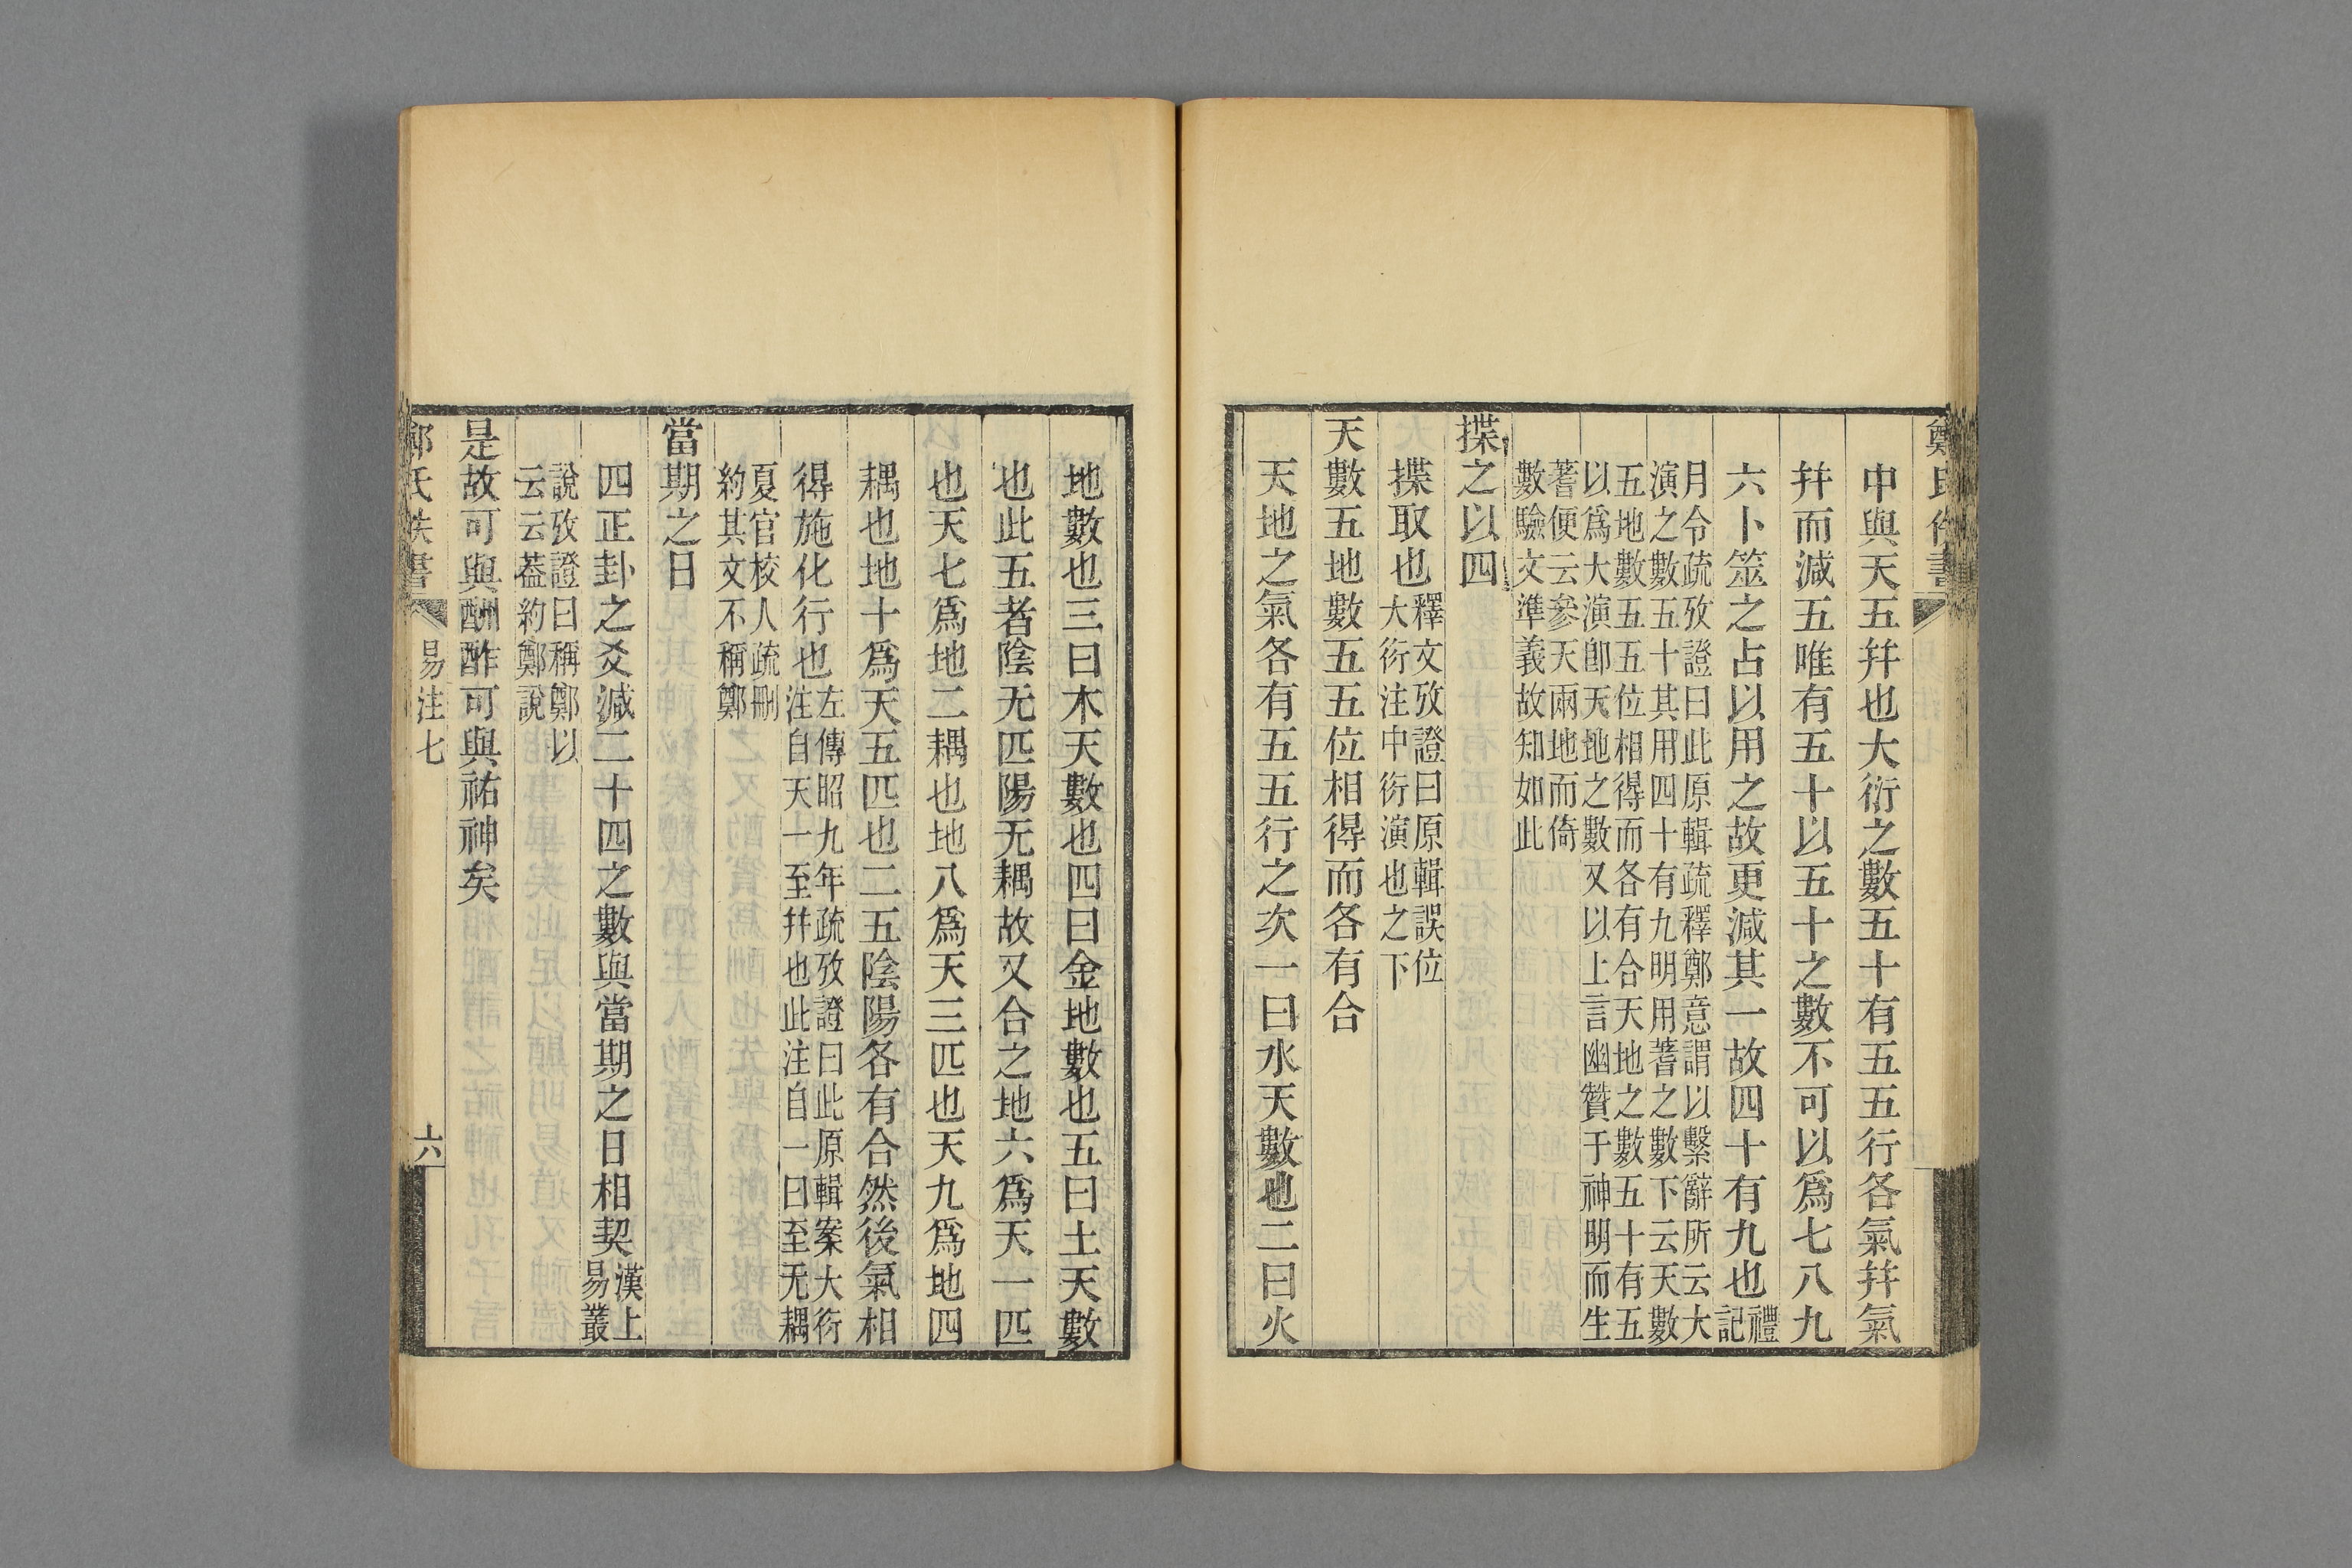 中與天五幷也大衍之數五十有五五行各氣幷氣
幷而減五唯有五十以五十之數不可以爲七八九
六卜筮之占以用之故更減其一故四十有九也禮
記
月令疏攷證曰此原輯疏釋鄭意謂以繫辭所云大
演之數五十其用四十有九明用蓍之數下云天數
五地數五五位相得而各有合天地之數五十有五
以爲大演卽天地之數又以上言幽贊于神明而生
蓍便云參天兩地而倚
數驗文準義故知如此
揲之以四
揲取也釋文攷證曰原輯誤位
大衍注中衍演也之下
天數五地數五五位相得而各有合
天地之氣各有五五行之次一曰水天數也二曰火
地數也三曰木天數也四曰金地數也五曰土天數
也此五者陰无匹陽无耦故又合之地六爲天一匹
也天七爲地二耦也地八爲天三匹也天九爲地四
耦也地十爲天五匹也二五陰陽各有合然後氣相
得施化行也左傳昭九年疏攷證曰此原輯案大衍
注自天一至幷也此注自一曰至无耦
夏官校人疏刪
約其文不稱鄭
當期之日
四正卦之爻減二十四之數與當期之日相契漢上
易叢
說攷證曰稱鄭以
云云葢約鄭說
是故可與酬酢可與祐神矣
易注七
六